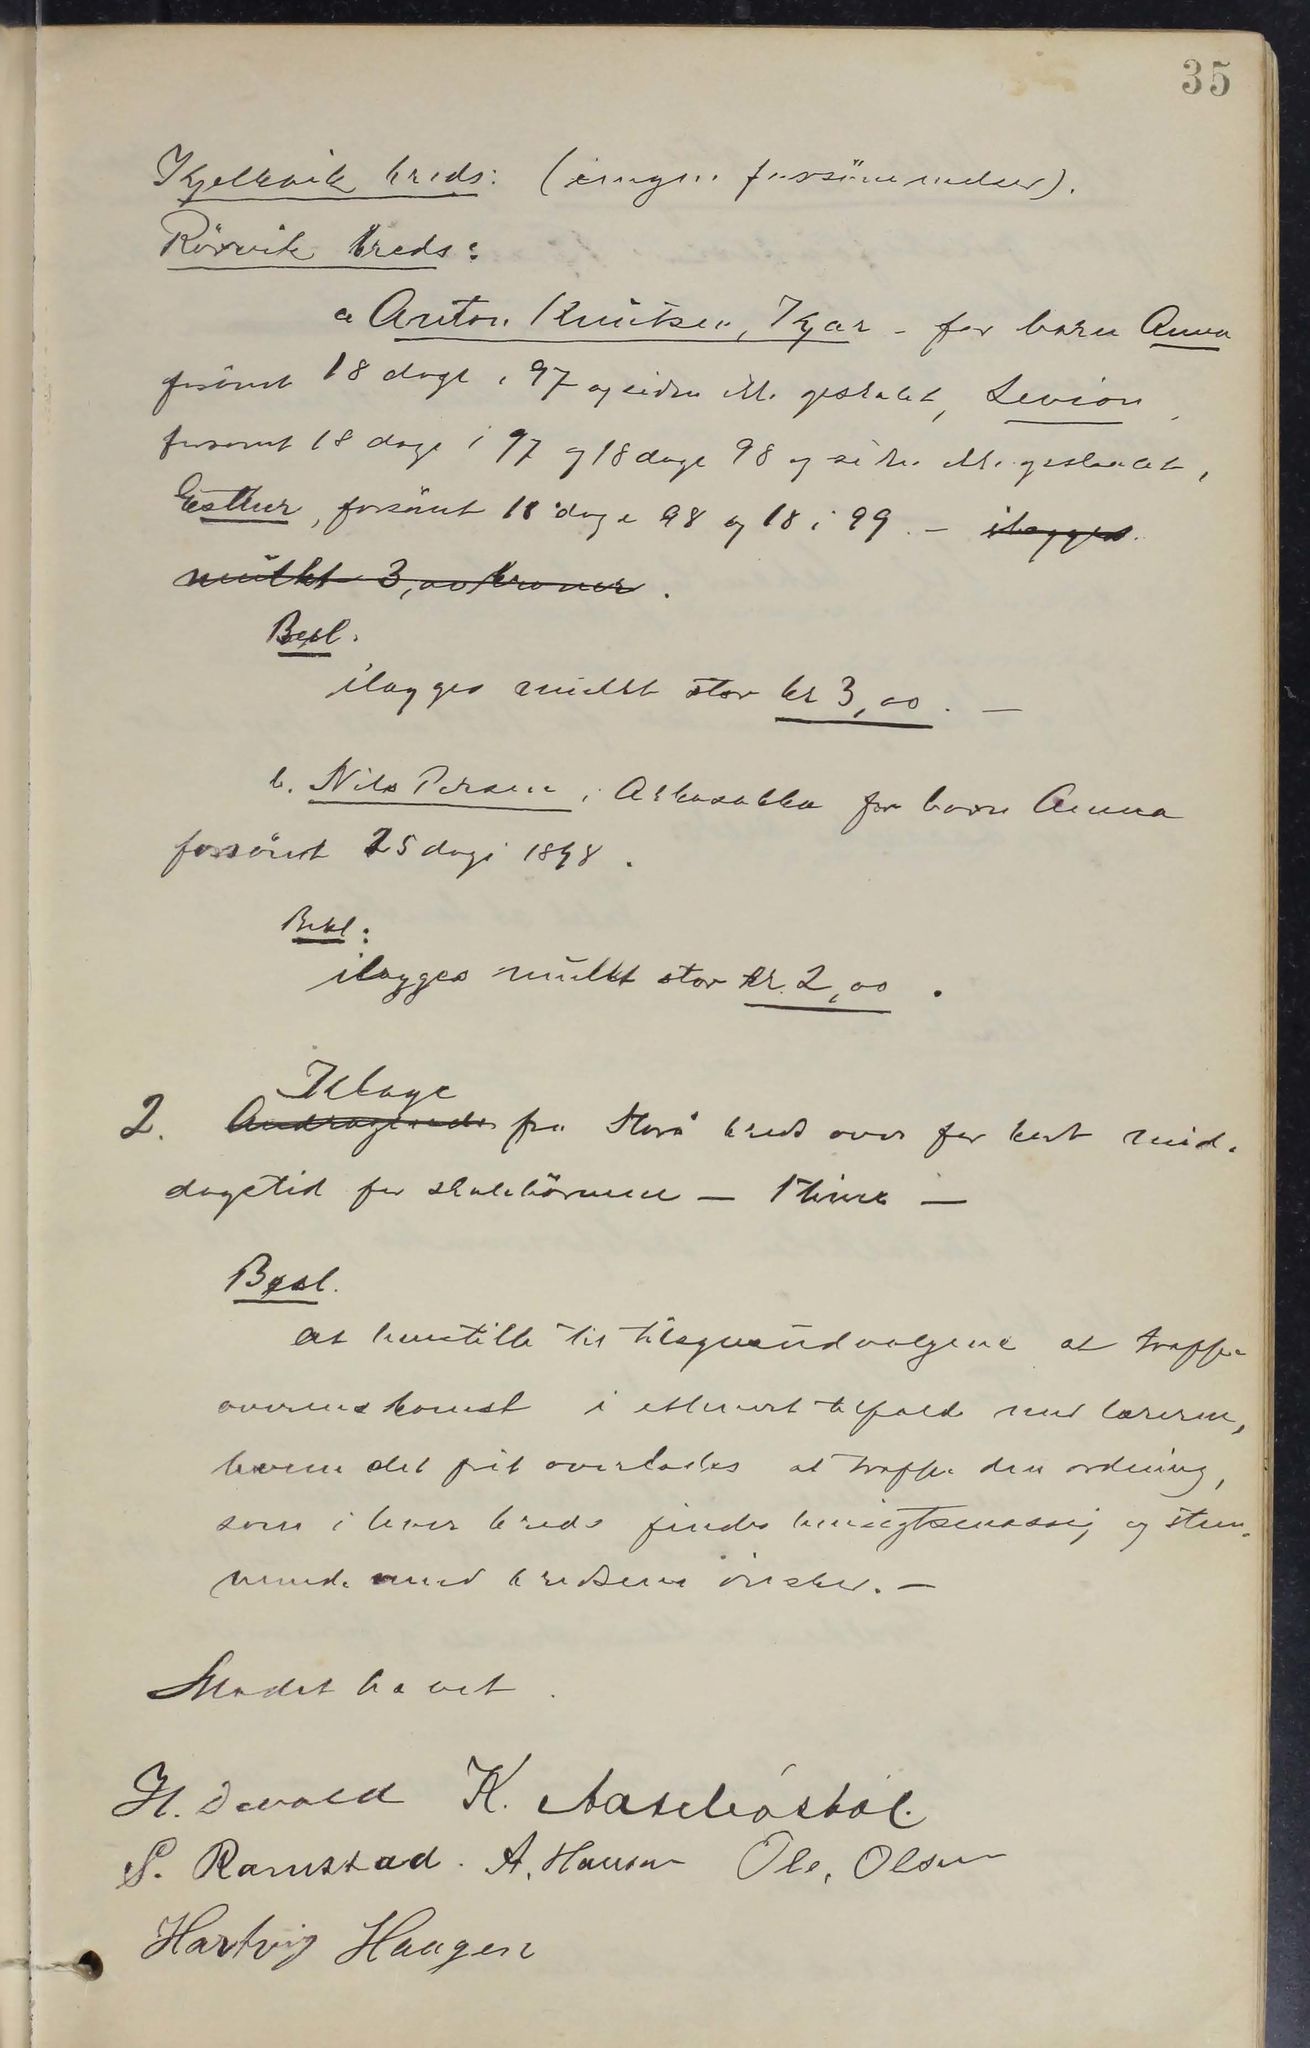 35
Kjelkvik kreds: (ingen forsömmelser).
Rörvik kreds:
a Anton Knutsen, Kjær - for barn Anna
forsömt 18 dage i 97 og siden ikke gesluttet, Levion,
forsömt 18 dage i 97 og 18 dage 98 og siden ikke
Esther, forsömt 18 dage 98 og 18 i 99. - ilægges
mulkt 3,00 kroner.
Besl.
ilægges mulkt stor kr 3,00. —
b. Nils Persen, for barn Anna
forsömt 25 dage 1898.
Besl:
ilægges mulkt stor kr. 2,00.
Klage
2. Andragende fra Storå kreds over for kort mid-
dagstid for skolebörnene — 1 time —
Besl.
at henstille til tilsynsudvalgene at træffe
overenskomst i ethvert tilfælde med læreren,
hvem det frit overlades at træffe den ordning,
som i hver kreds findes hensigtsmæssig og stem-
mende med kredsens önsker. —
Mödet hævet.
H. Devold K. Aasebøstøl.
S. Ramstad. A. Hansen Ole. Olsen
Hartvig Haagen